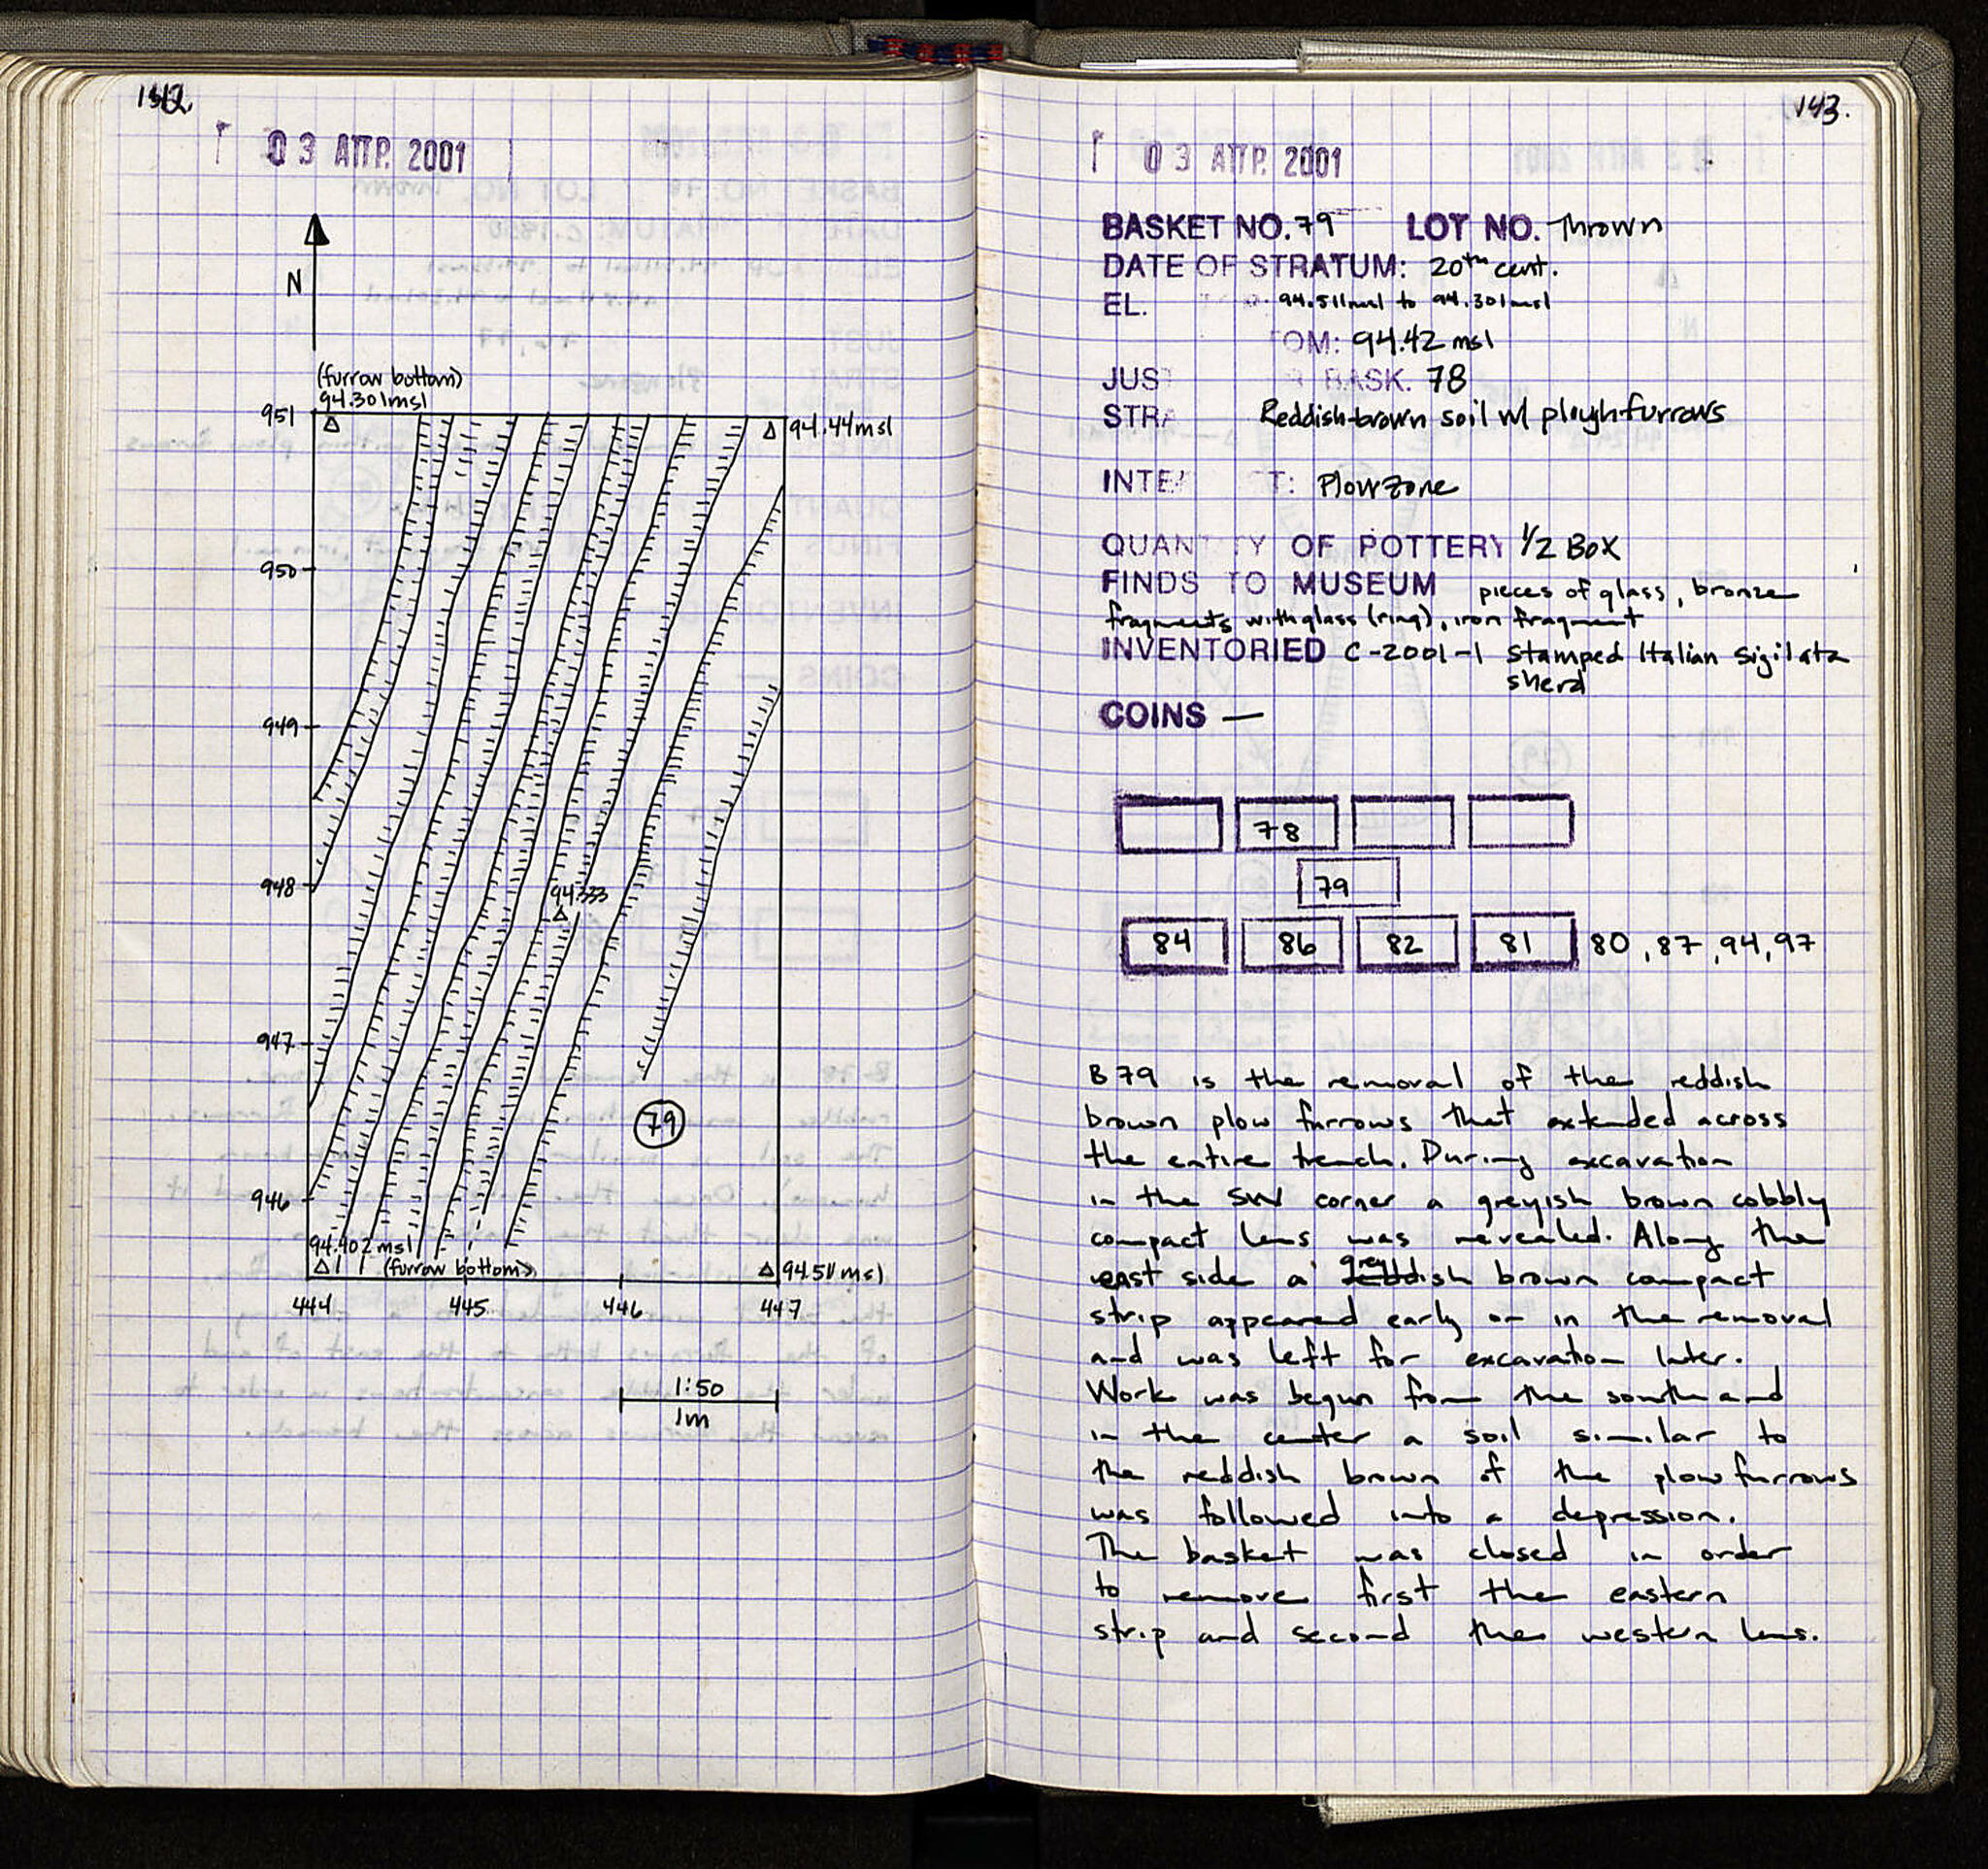 142
03 ΑΠΡ. 2001
N
(furrow bottom)
94.301msl
951
94.44msl
950
949
948
94.333
947
79
946
94.402 msl
(furrow bottom)
94.511msl
444 445 446 447
1:50
1m
143.
03 ΑΠΡ. 2001
BASKET NO. 79 LOT NO. Thrown
DATE OF STRATUM: 20th cent.
EL. 94.511msl to 94.301msl
OM: 94.42 msl
JUS BASK. 78
STRA Reddish-brown soil w/ plough furrows
INTE T: Plow zone
QUANTITY OF POTTERY 1/2 BOX
FINDS TO MUSEUM pieces of glass, bronze
fragments with glass (ring), iron fragment
INVENTORIED C-2001-1 Stamped Italian Sigilata
sherd
COINS —
78
79
84 86 82 81 80, 87, 94, 97
B79 is the removal of the reddish
brown plow furrows that extended across
the entire trench. During excavation
in the SW corner a greyish brown cobbly
compact lens was revealed. Along the
east side a greyish brown compact
strip appeared early on in the removal
and was left for excavation later.
Work was begun from the south and
in the center a soil similar to
the reddish brown of the plow furrows
was followed into a depression.
The basket was closed in order
to remove first the eastern
strip and second the western lens.